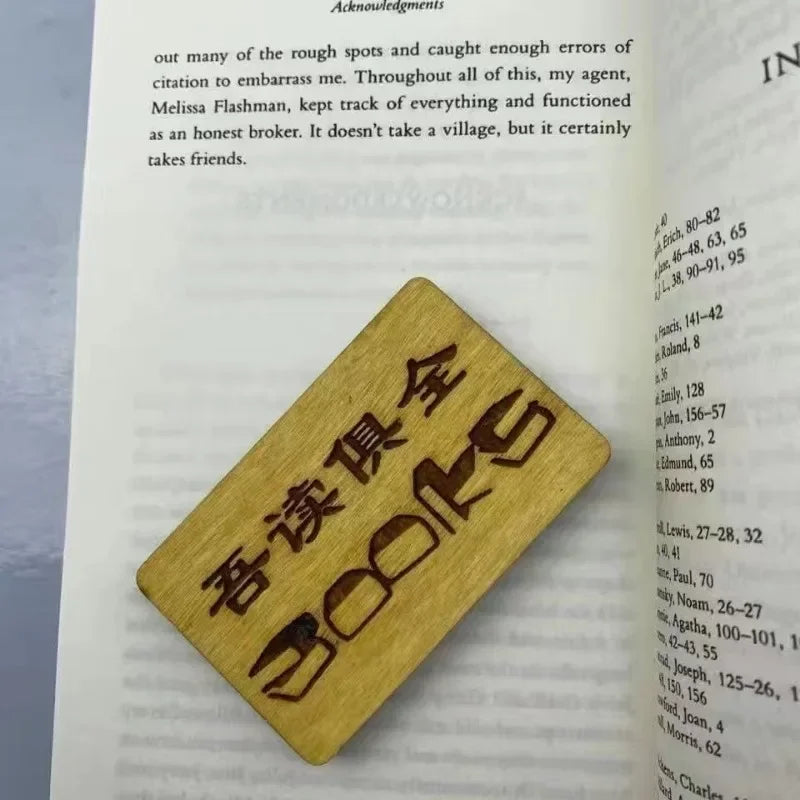 Acknowledgments
out many of the rough spots and caught enough errors of
citation to embarrass me. Throughout all of this, my agent,
Melissa Flashman, kept track of everything and functioned
as an honest broker. It doesn't take a village, but it certainly
takes friends.
吾读俱全
BOOKS
IN
40
Erich, 80–82
Jane, 46–48, 63, 65
J. L., 38, 90–91, 95
Francis, 141–42
Roland, 8
36
Emily, 128
John, 156–57
Anthony, 2
Edmund, 65
Robert, 89
Lewis, 27–28, 32
40, 41
Paul, 70
Noam, 26–27
Agatha, 100–101,
42–43, 55
Joseph, 125–26,
150, 156
Joan, 4
Morris, 62
Charles